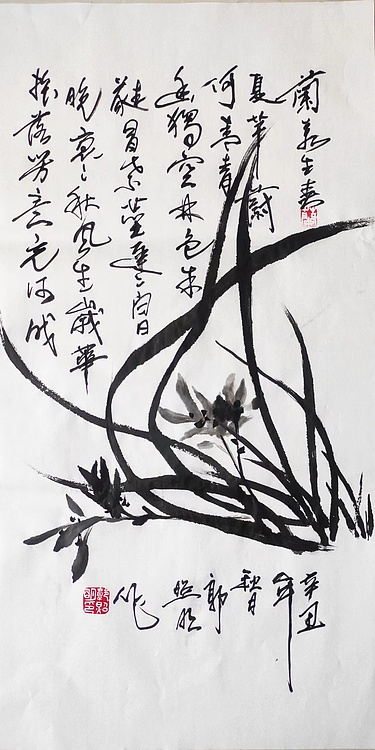 蘭若生春
夏芊蔚
何青青
幽獨空林色朱
蕤冒紫莖遲〻白日
晚裊〻秋风生歲華
搖落芳意竟何成
辛丑
年
秋日
郭
照明
作